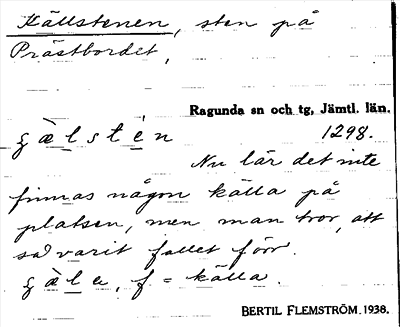 Källstenen, sten på
Prästbordet,
Ragunda sn och tg, Jämtl. län.
gæ̀lstén 1298.
Nu lär det inte
finnas någon källa på
platsen, men man tror, att
så varit fallet förr.
gæ̀la, f = källa.
BERTIL FLEMSTRÖM. 1938.